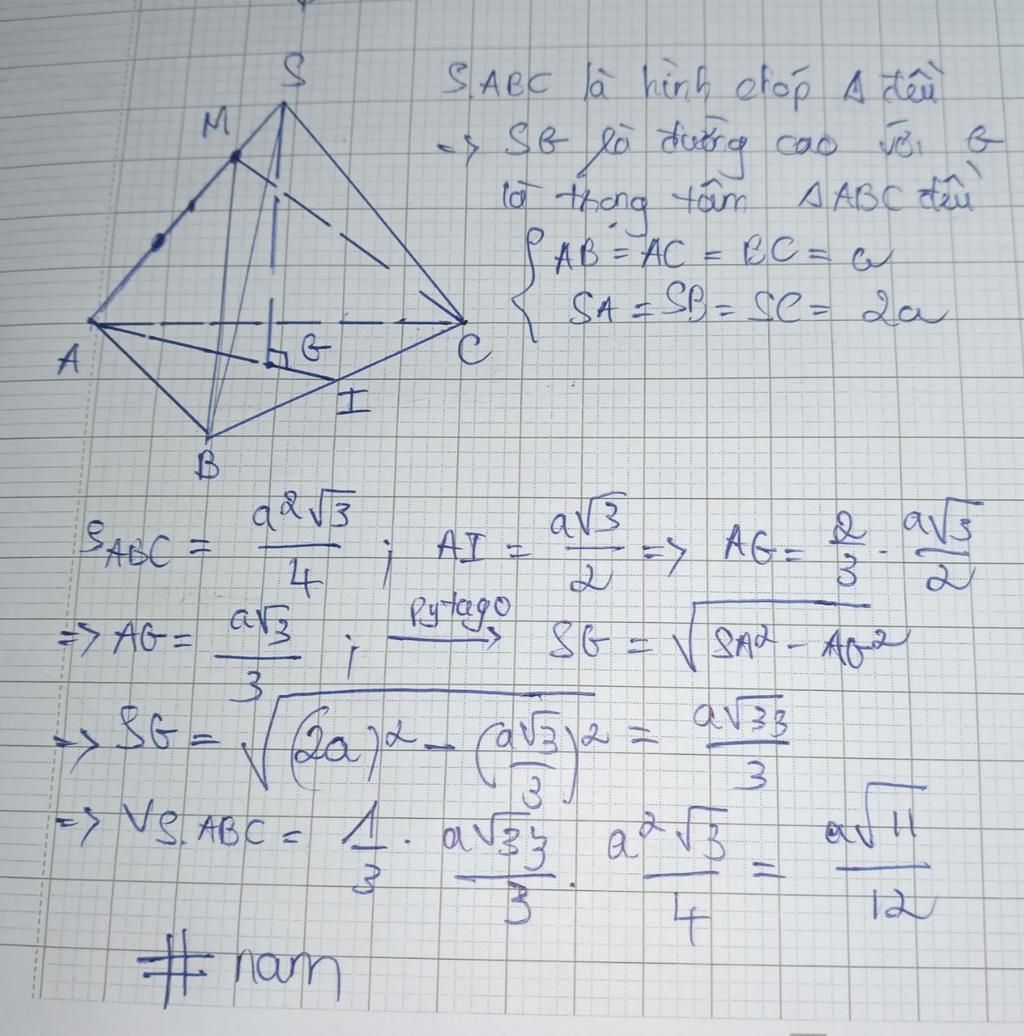 S
M
A
B
C
G
I
S.ABC là hình chóp Δ đều
=> SG là đường cao với G
là trọng tâm ΔABC đều
{ AB = AC = BC = a
SA = SB = SC = 2a
S_ABC = a²√3/4 ; AI = a√3/2 => AG = 2/3 · a√3/2
=> AG = a√3/3 ; pytago → SG = √(SA² - AG²)
=> SG = √((2a)² - (a√3/3)²) = a√33/3
=> VS.ABC = 1/3 · a√33/3 . a²√3/4 = a√11/12
# nam